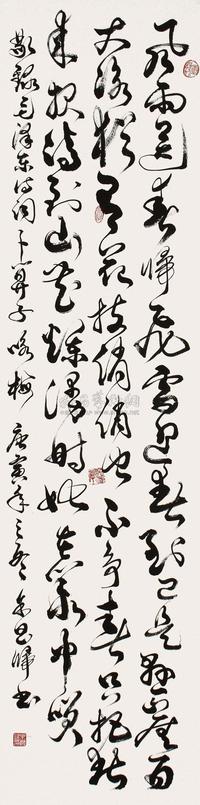 風雨送春歸飛雪迎春到已是懸崖百
丈冰猶有花枝俏俏也不争春只把春
来报待到山花爛漫時她在丛中笑
敬録毛泽东诗词卜算子咏梅 庚寅年之冬 書